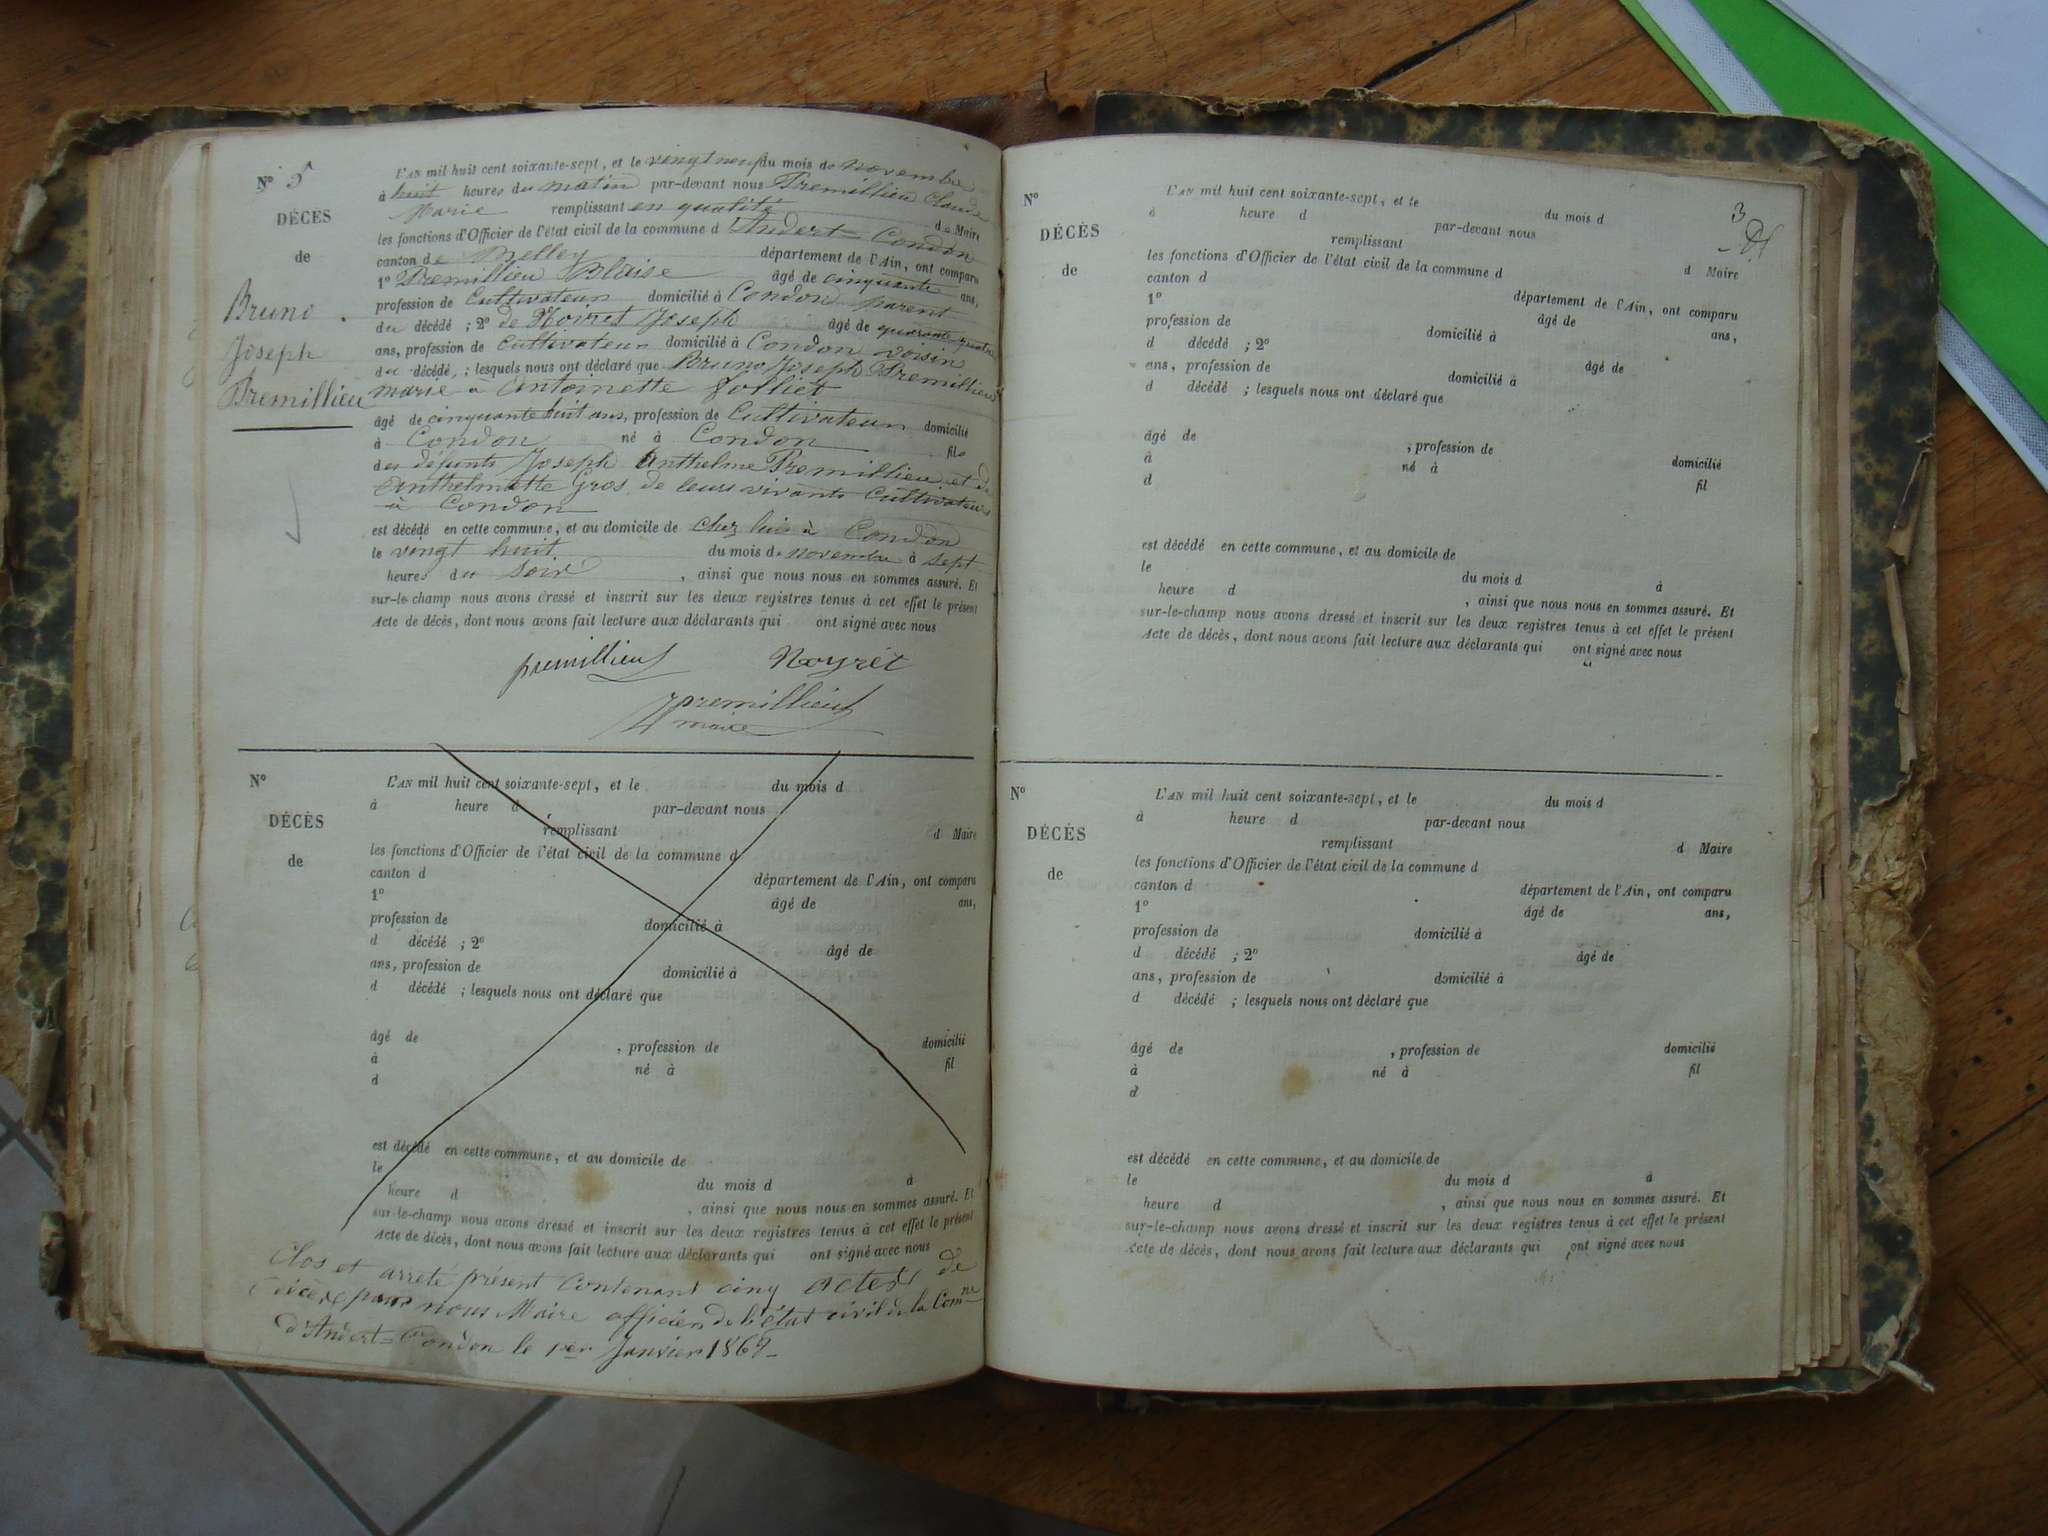 N° 5
DÉCES
de
Bruno
Joseph
Premillieu
L'AN mil huit cent soixante-sept, et le vingt neuf du mois de novembre
à huit heures du matin par-devant nous Premillieu Claude
Marie remplissant en qualité de Maire
les fonctions d'Officier de l'état civil de la commune d'Andert-Condon
canton de Belley département de l'Ain, ont comparu
1° Premillieu Blaise âgé de cinquante ans,
profession de Cultivateur domicilié à Condon parent
du décédé ; 2° de Noiret Joseph âgé de quarante quatre
ans, profession de Cultivateur domicilié à Condon voisin
du décédé ; lesquels nous ont déclaré que Bruno Joseph Premillieu
marié à Antoinette Jolliet
âgé de cinquante huit ans, profession de Cultivateur domicilié
à Condon né à Condon fils
des défunts Joseph Anthelme Premillieu et de
Anthelmette Gros de leurs vivants Cultivateurs
à Condon
est décédé en cette commune, et au domicile de chez lui à Condon
le vingt huit du mois de novembre à sept
heures du soir , ainsi que nous nous en sommes assuré. Et
sur-le-champ nous avons dressé et inscrit sur les deux registres tenus à cet effet le présent
Acte de décès, dont nous avons fait lecture aux déclarants qui ont signé avec nous
premillieu Noyrét
premillieu
maire
N°
DÉCÈS
de
L'AN mil huit cent soixante-sept, et le du mois d
à heure d par-devant nous
remplissant d Maire
les fonctions d'Officier de l'état civil de la commune d
canton d département de l'Ain, ont comparu
1° âgé de ans,
profession de domicilié à
d décédé ; 2° âgé de
ans, profession de domicilié à
d décédé ; lesquels nous ont déclaré que
âgé de , profession de domicilié
à né à fil
d
est décédé en cette commune, et au domicile de
le du mois d à
heure d , ainsi que nous nous en sommes assuré. Et
sur-le-champ nous avons dressé et inscrit sur les deux registres tenus à cet effet le présent
Acte de décès, dont nous avons fait lecture aux déclarants qui ont signé avec nous
Clos et arreté présent contenant cinq actes de
par nous Maire officier de l'état civil de la Comne
d'Andert-Condon le 1er Janvier
N°
DÉCÈS
de
3
L'AN mil huit cent soixante-sept, et le du mois d
à heure d par-devant nous
remplissant d Maire
les fonctions d'Officier de l'état civil de la commune d
canton d département de l'Ain, ont comparu
1° âgé de ans,
profession de domicilié à
d décédé ; 2° âgé de
ans, profession de domicilié à
d décédé ; lesquels nous ont déclaré que
âgé de , profession de domicilié
à né à fil
d
est décédé en cette commune, et au domicile de
le du mois d à
heure d , ainsi que nous nous en sommes assuré. Et
sur-le-champ nous avons dressé et inscrit sur les deux registres tenus à cet effet le présent
Acte de décès, dont nous avons fait lecture aux déclarants qui ont signé avec nous
N°
DÉCÈS
de
L'AN mil huit cent soixante-sept, et le du mois d
à heure d par-devant nous
remplissant d Maire
les fonctions d'Officier de l'état civil de la commune d
canton d département de l'Ain, ont comparu
1° âgé de ans,
profession de domicilié à
d décédé ; 2° âgé de
ans, profession de domicilié à
d décédé ; lesquels nous ont déclaré que
âgé de , profession de domicilié
à né à fil
d
est décédé en cette commune, et au domicile de
le du mois d à
heure d , ainsi que nous nous en sommes assuré. Et
sur-le-champ nous avons dressé et inscrit sur les deux registres tenus à cet effet le présent
Acte de décès, dont nous avons fait lecture aux déclarants qui ont signé avec nous